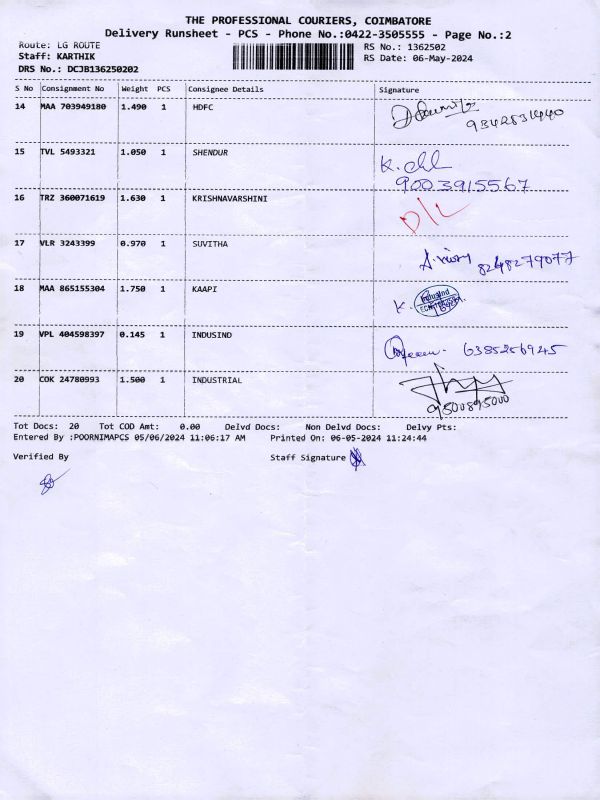 THE PROFESSIONAL COURIERS, COIMBATORE
Delivery Runsheet - PCS - Phone No.:0422-3505555 - Page No.:2
Route: LG ROUTE RS No.: 1362502
Staff: KARTHIK RS Date: 06-May-2024
DRS No.: DCJB136250202
S No Consignment No Weight PCS Consignee Details Signature
14 MAA 703949180 1.490 1 HDFC
15 TVL 5493321 1.050 1 SHENDUR K.
9003915567
16 TRZ 360071619 1.630 1 KRISHNAVARSHINI D/L
17 VLR 3243399 0.970 1 SUVITHA 8248279077
18 MAA 865155304 1.750 1 KAAPI K.
19 VPL 404598397 0.145 1 INDUSIND 6385256945
20 COK 24780993 1.500 1 INDUSTRIAL
9500895000
Tot Docs: 20 Tot COD Amt: 0.00 Delvd Docs: Non Delvd Docs: Delvy Pts:
Entered By :POORNIMAPCS 05/06/2024 11:06:17 AM Printed On: 06-05-2024 11:24:44
Verified By Staff Signature